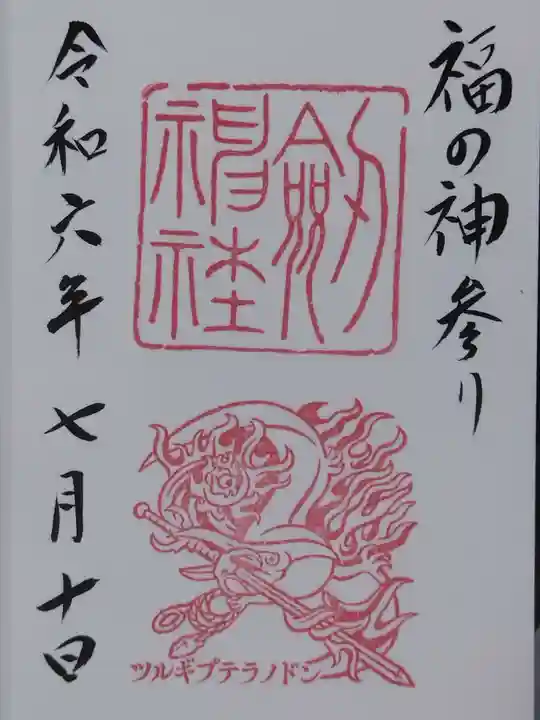 福の神参り
劔
神社
令和六年 七月十日
ツルギプテラノドン